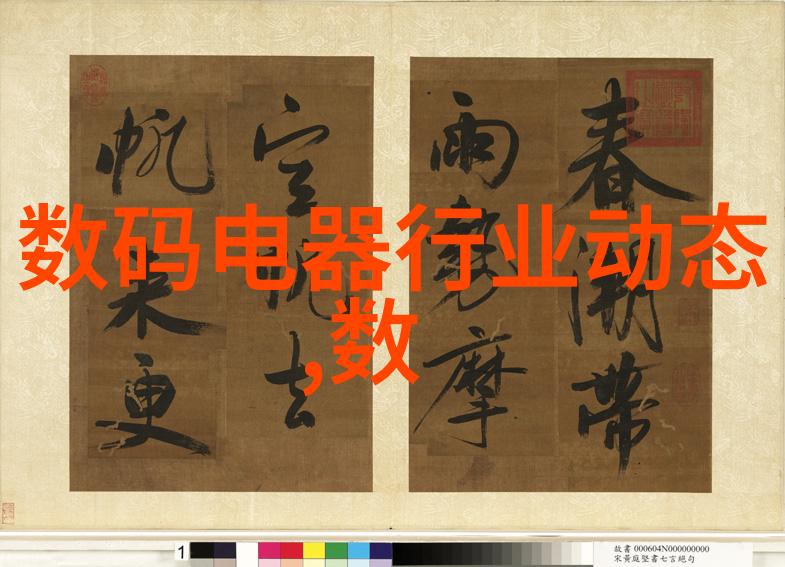 数码电器行业动态
,数
春潮帶
雨勢摩
空帆去
帆來更
1
故書 000604N000000000
宋黃庭堅書七言絕句